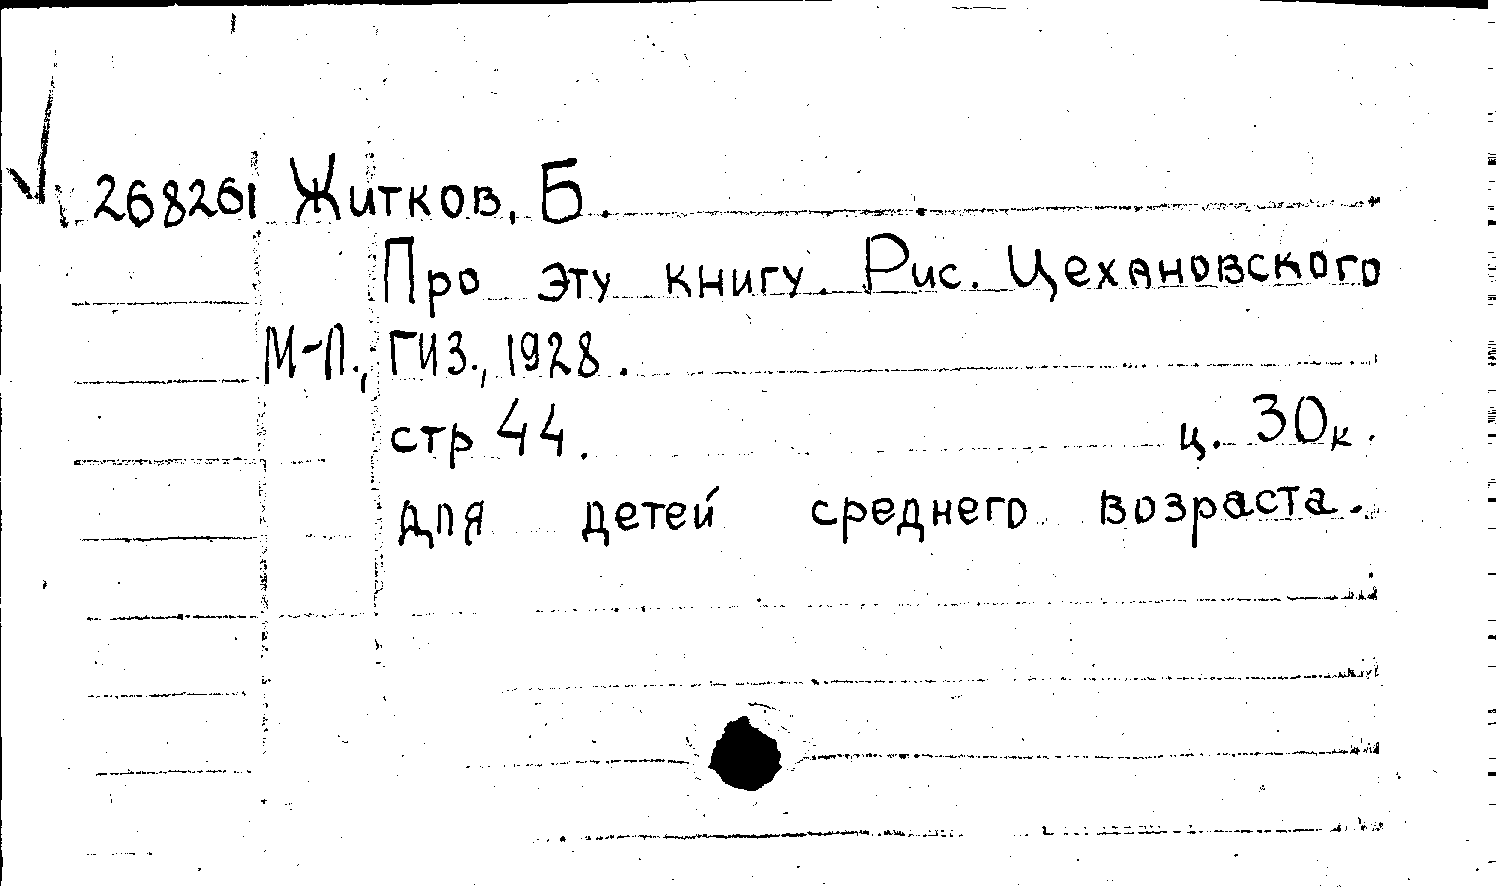 268261 Житков, Б.
Про эту книгу. Рис. Цехановского
М-Л., ГИЗ., 1928.
стр 44. ц. 30к.
для детей среднего возраста.